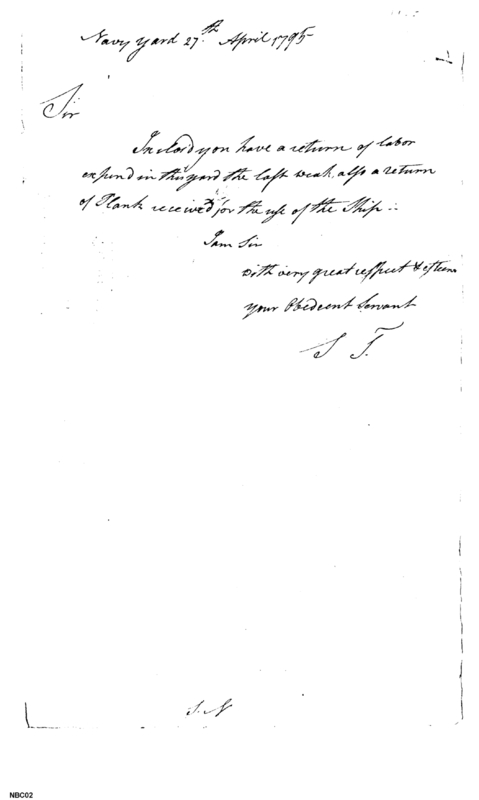 Navy Yard 27th April 1795
Sir
Inclosd you have a return of labor
expend in this yard the last weak also a return
of Plank receivd for the use of the Ship
I am Sir
with very great respect & esteem
your Obedeent Servant
S T.
J. N
NBC02